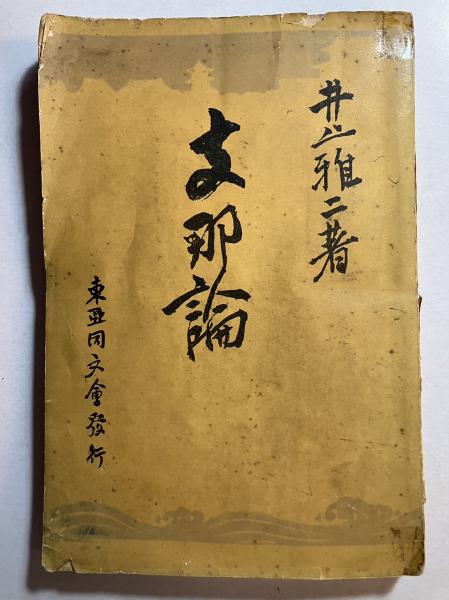 井上雅二著
支那論
東亜同文會發行